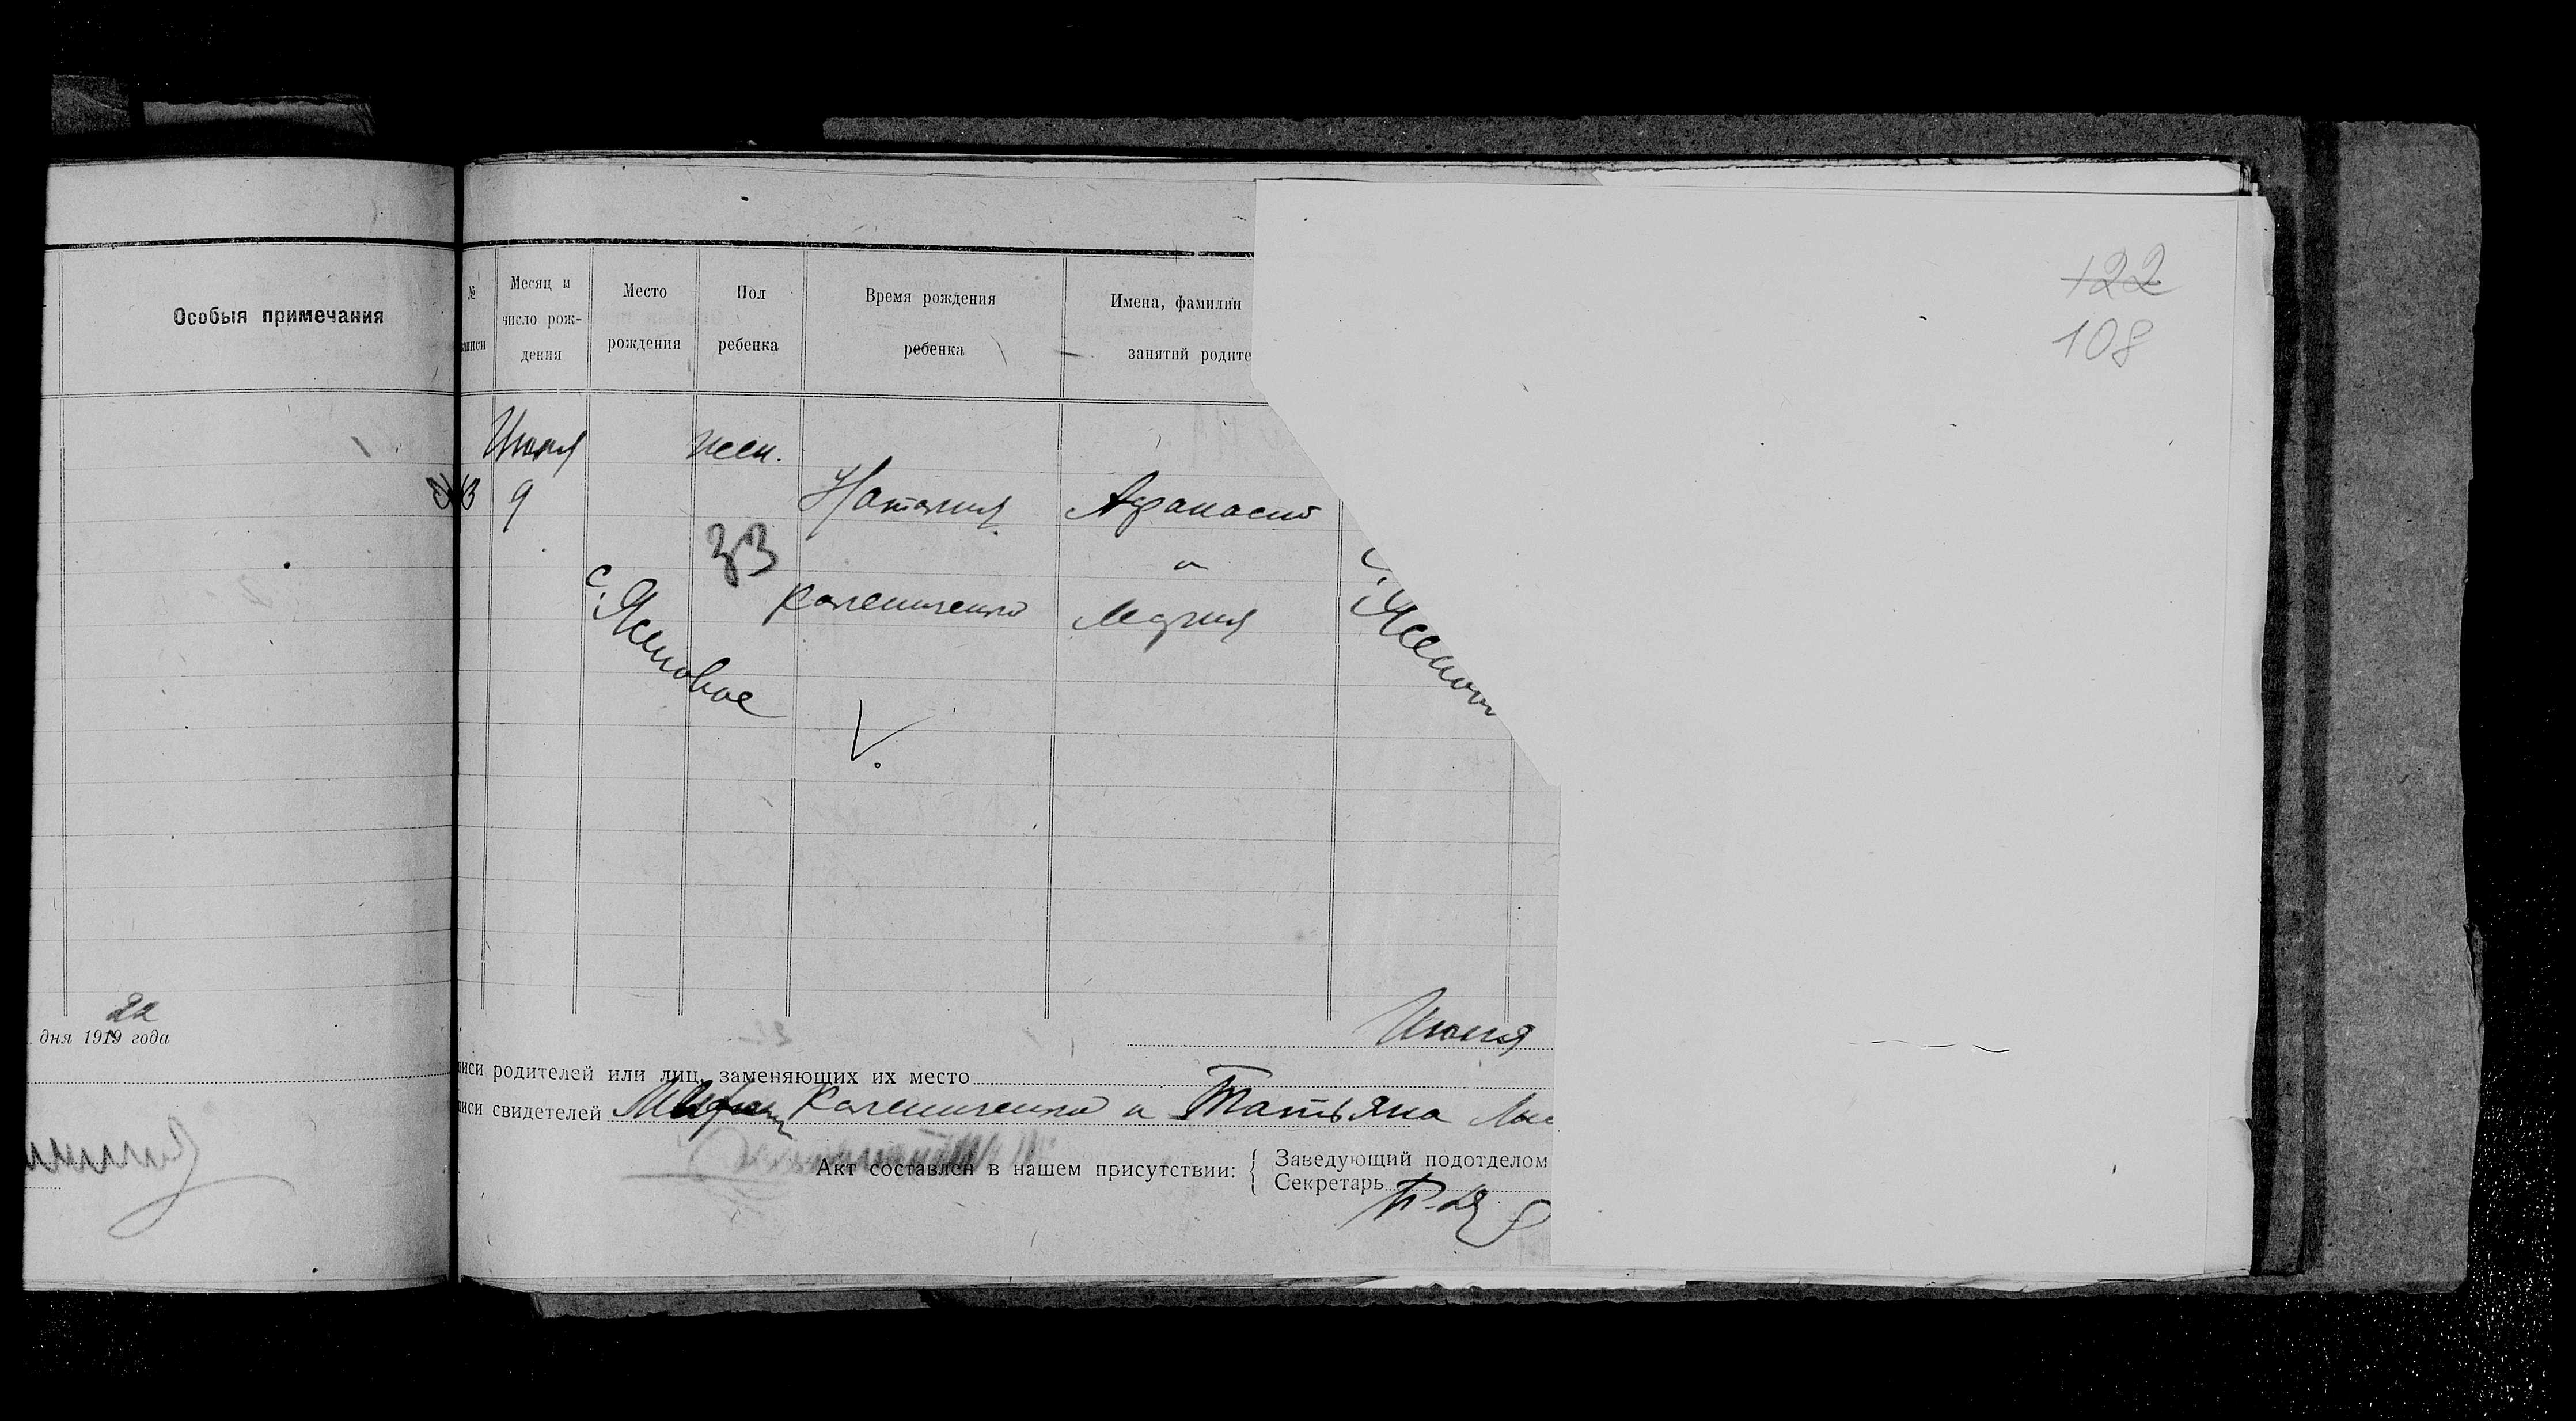 Особыя примечания
22
дня 1919 года
122
108
№ Месяц и Место Пол Время рождения Имена, фамилии
число рож-
записи дения рождения ребенка ребенка занятий родите
жен.
33 9 Наталия Афанасий
и
33
с. Ясеновое Колениченко Мария с. Ясенов
Июня
писи родителей или лиц, заменяющих их место
писи свидетелей Колениченко и Татьяна
Акт составлен в нашем присутствии: { Заведующий подотделом
Секретарь